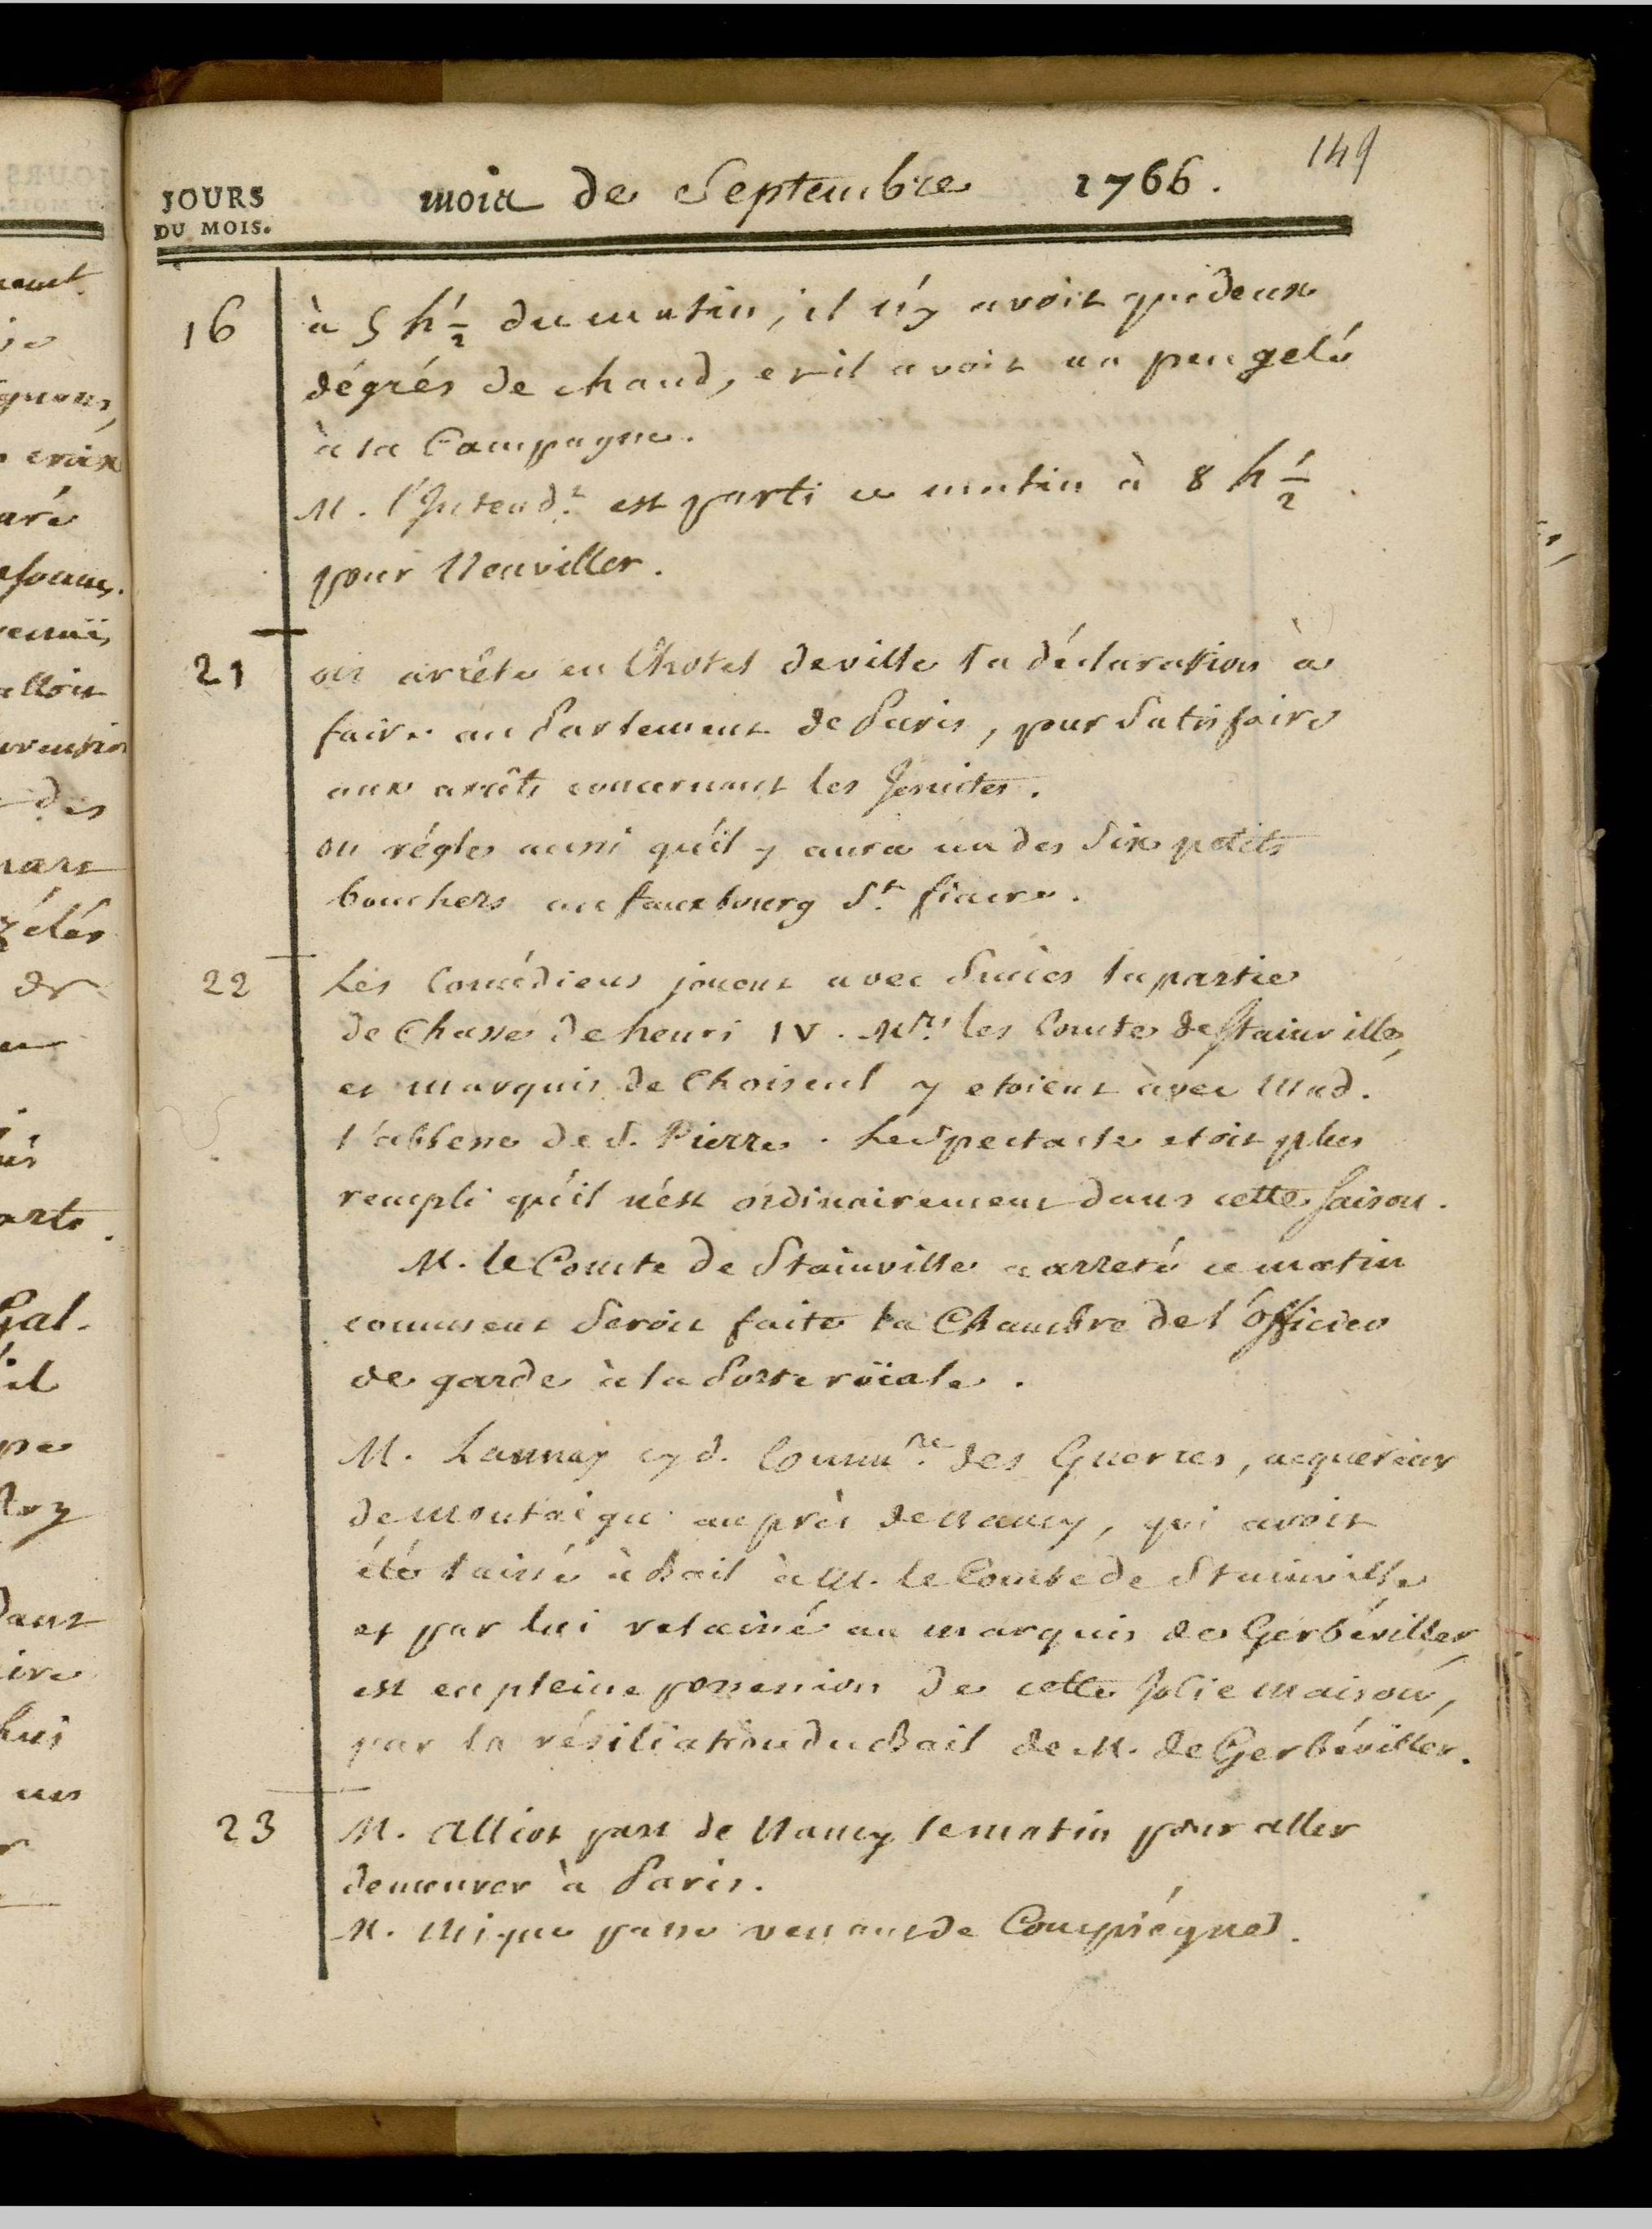 149
JOURS
DU MOIS.
mois de Septembre 1766.
16
à 5 h 1/2 du matin, il n'y avoit que deux
dégrés de chaud, et il avoit un peu gelé
à la Campagne.
M. l'Intend.t est parti ce matin à 8 h 1/2
pour Neuviller.
21
on arrête en l'hotel de ville la déclaration à
faire au Parlement de Paris, pour Satisfaire
aux arrêts concernant les Jesuites.
on régle aussi qu'il y aura un des Six petits
bouchers au fauxbourg S.t fiacre.
22
Les Comédiens jouent avec Succès la partie
de Chasse de henri IV. M.rs les Comte de Stainville,
et marquis de Choiseul y etoient avec Mad.
l'abbesse de S. Pierre. Le Spectacle etoit plus
rempli qu'il n'est ordinairement dans cette Saison.
M. le Comte de Stainville a arreté ce matin
comment Seroit faite la Chambre de l'officier
de garde à la Porte roïale.
M. Launay cy d. Comm.re des Guerres, acquereur
de Montaigu auprès de Nancy, qui avoit
été laissé à Bail à M. le Comte de Stainville
et par lui relaissé au marquis de Gerbéviller,
est en pleine possession de cette jolie maison,
par la résiliation du Bail de M. de Gerbéviller.
23
M. Alliot part de Nancy le matin pour aller
demeurer à Paris.
M. Mique passe venant de Compiégne.